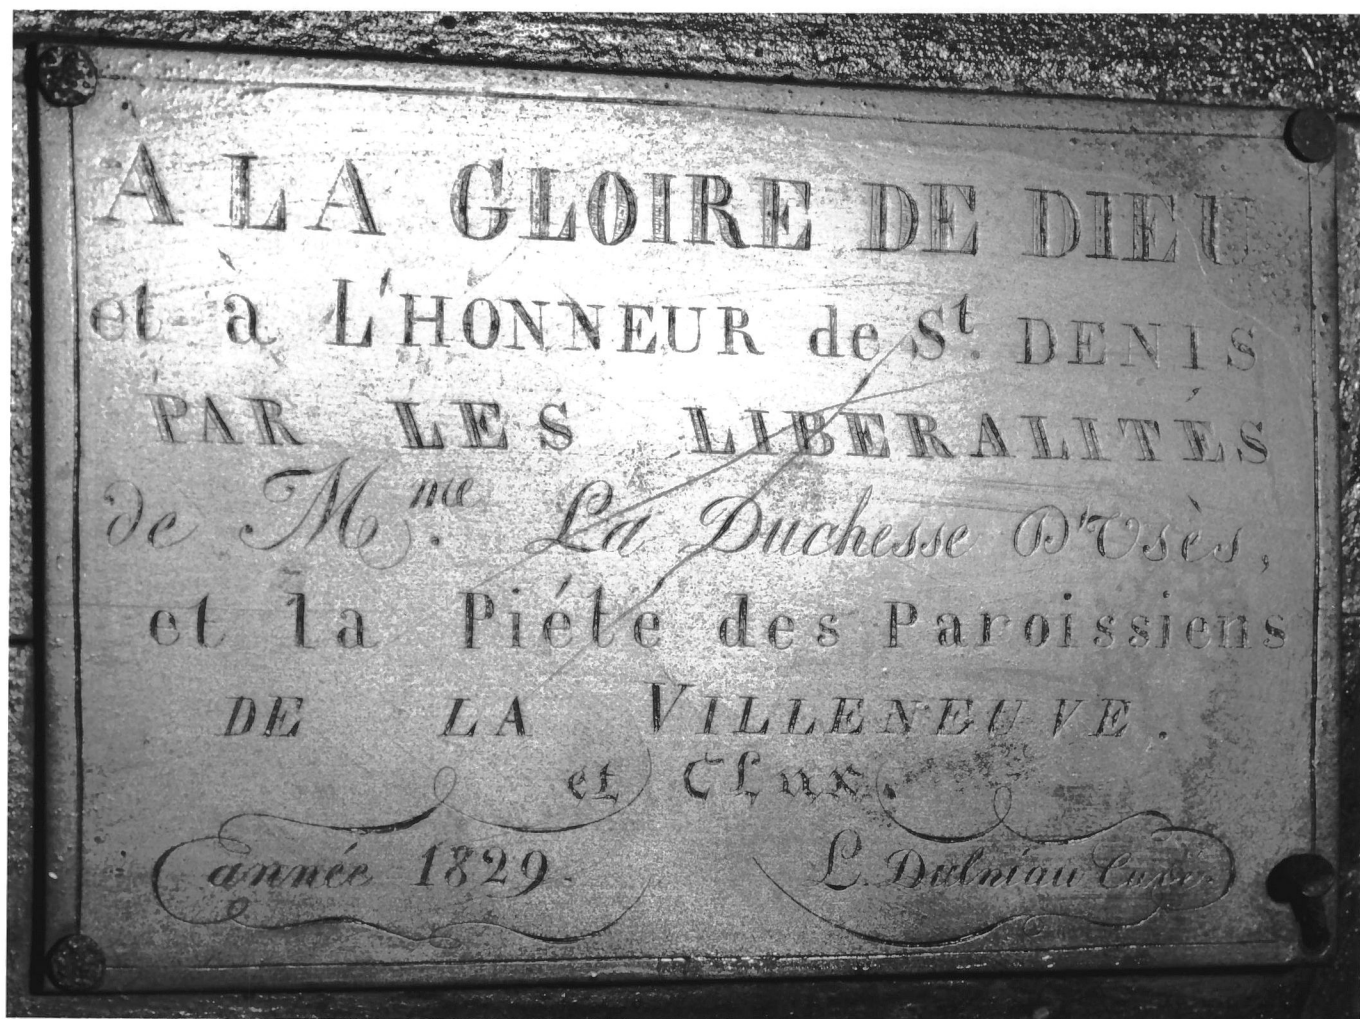 A LA GLOIRE DE DIEU
et à L'HONNEUR de St. DENIS
PAR LES LIBÉRALITÉS
de Mme. La Duchesse D'Usès,
et la Piéte des Paroissiens
DE LA VILLENEUVE.
et Clux.
année 1829. L. Dalmiau Curé.